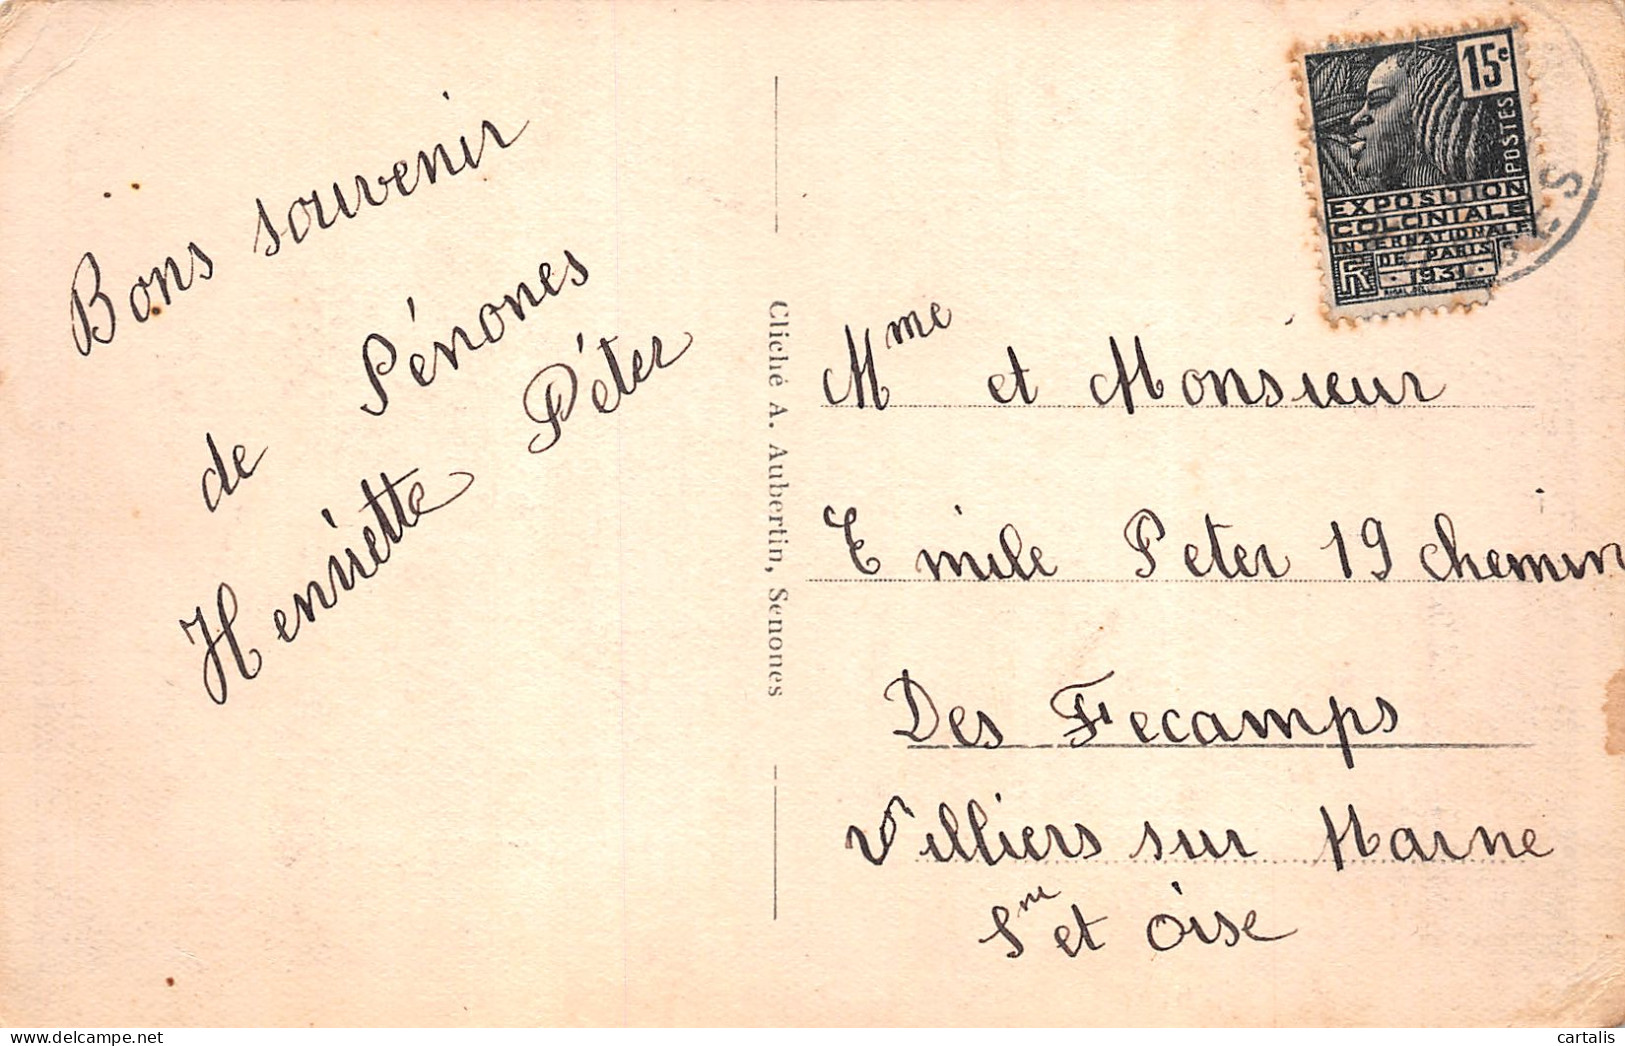 Bons souvenir
de Sénones
Henriette Péter
Cliché A. Aubertin, Senones
15c
POSTES
EXPOSITION
COLONIALE
INTERNATIONALE
DE PARIS
1931
RF
Mme et Monsieur
Emile Peter 19 chemin
Des Fecamps
Villiers sur Marne
Sne et Oise
cartalis